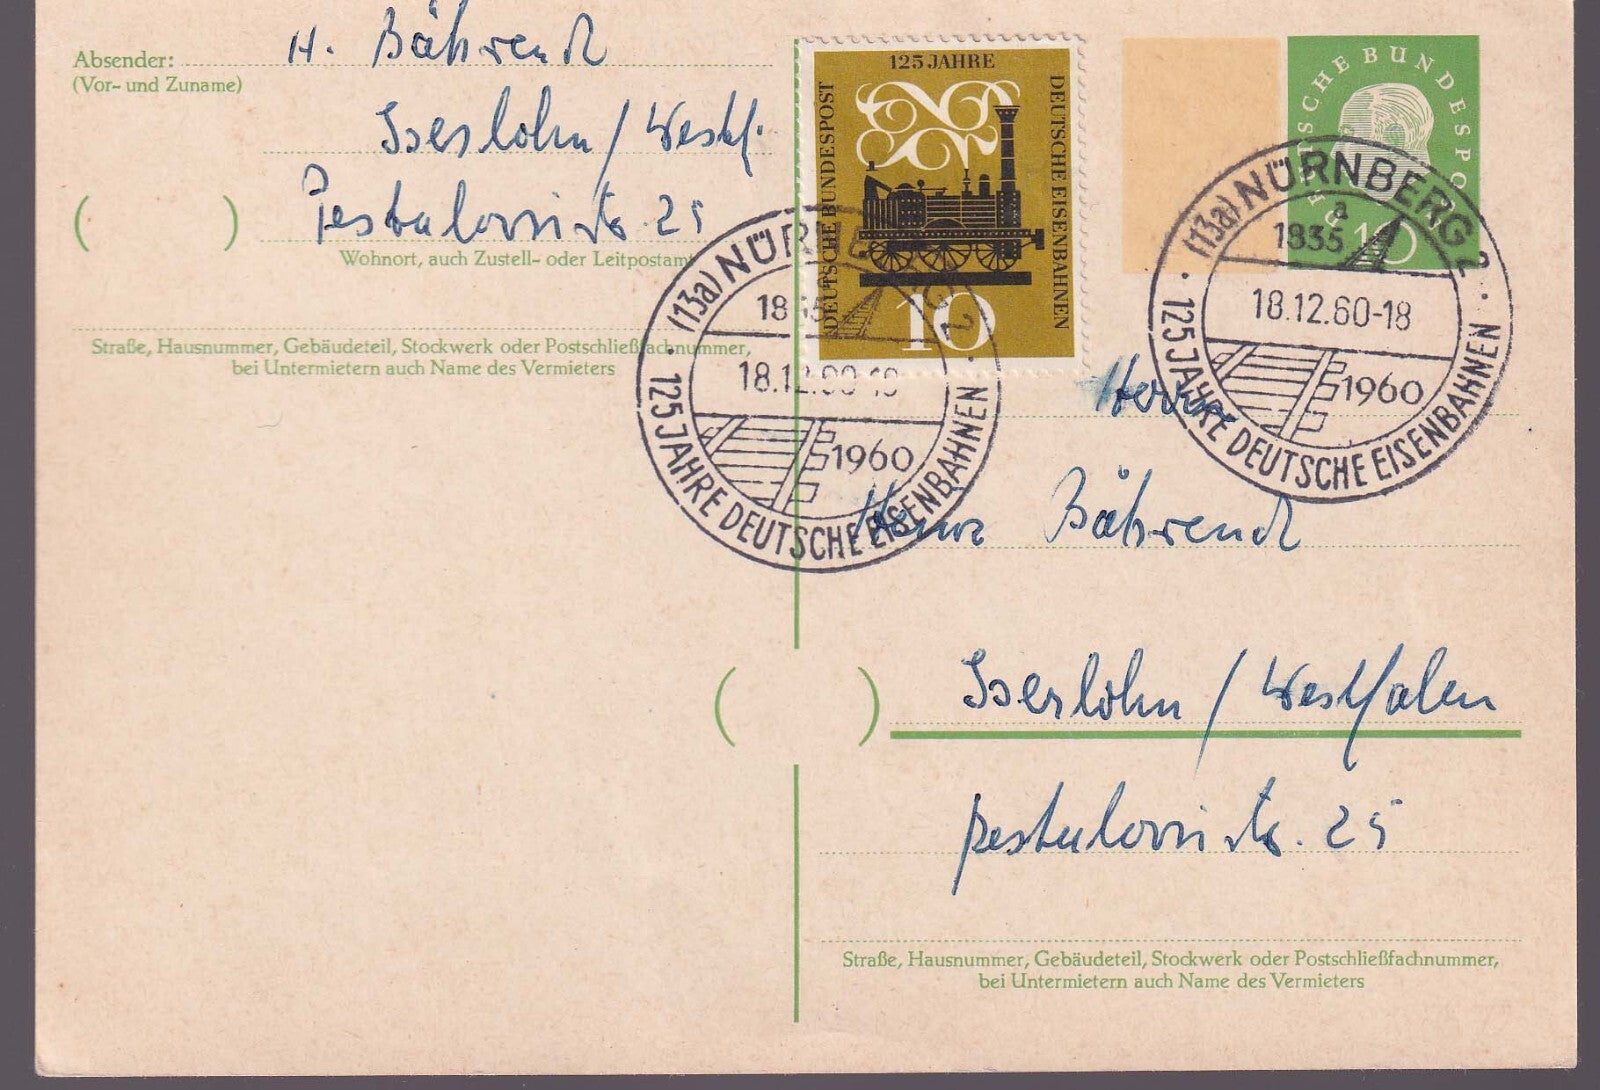 Absender:
(Vor- und Zuname)
H. Bährend
Iserlohn / Westf.
Pestalozzistr. 25
Wohnort, auch Zustell- oder Leitpostamt
Straße, Hausnummer, Gebäudeteil, Stockwerk oder Postschließfachnummer,
bei Untermietern auch Name des Vermieters
125 JAHRE
DEUTSCHE BUNDESPOST
DEUTSCHE EISENBAHNEN
10
DEUTSCHE BUNDESPOST
10
(13a) NÜRNBERG 2
1835
18.12.60-18
1960
125 JAHRE DEUTSCHE EISENBAHNEN
(13a) NÜRNBERG 2
a
1835
18.12.60-18
1960
125 JAHRE DEUTSCHE EISENBAHNEN
Herrn
Heinz Bährend
Iserlohn / Westfalen
Pestalozzistr. 25
Straße, Hausnummer, Gebäudeteil, Stockwerk oder Postschließfachnummer,
bei Untermietern auch Name des Vermieters